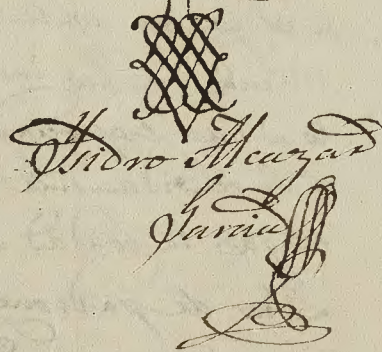 Ysidro Alcazar
Garcia